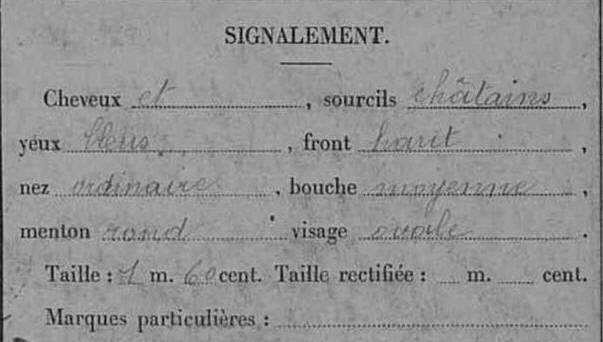 SIGNALEMENT.
Cheveux et, sourcils châtains,
yeux bleus, front haut,
nez ordinaire, bouche moyenne,
menton rond visage ovale.
Taille : 1 m. 60 cent. Taille rectifiée : m. cent.
Marques particulières :